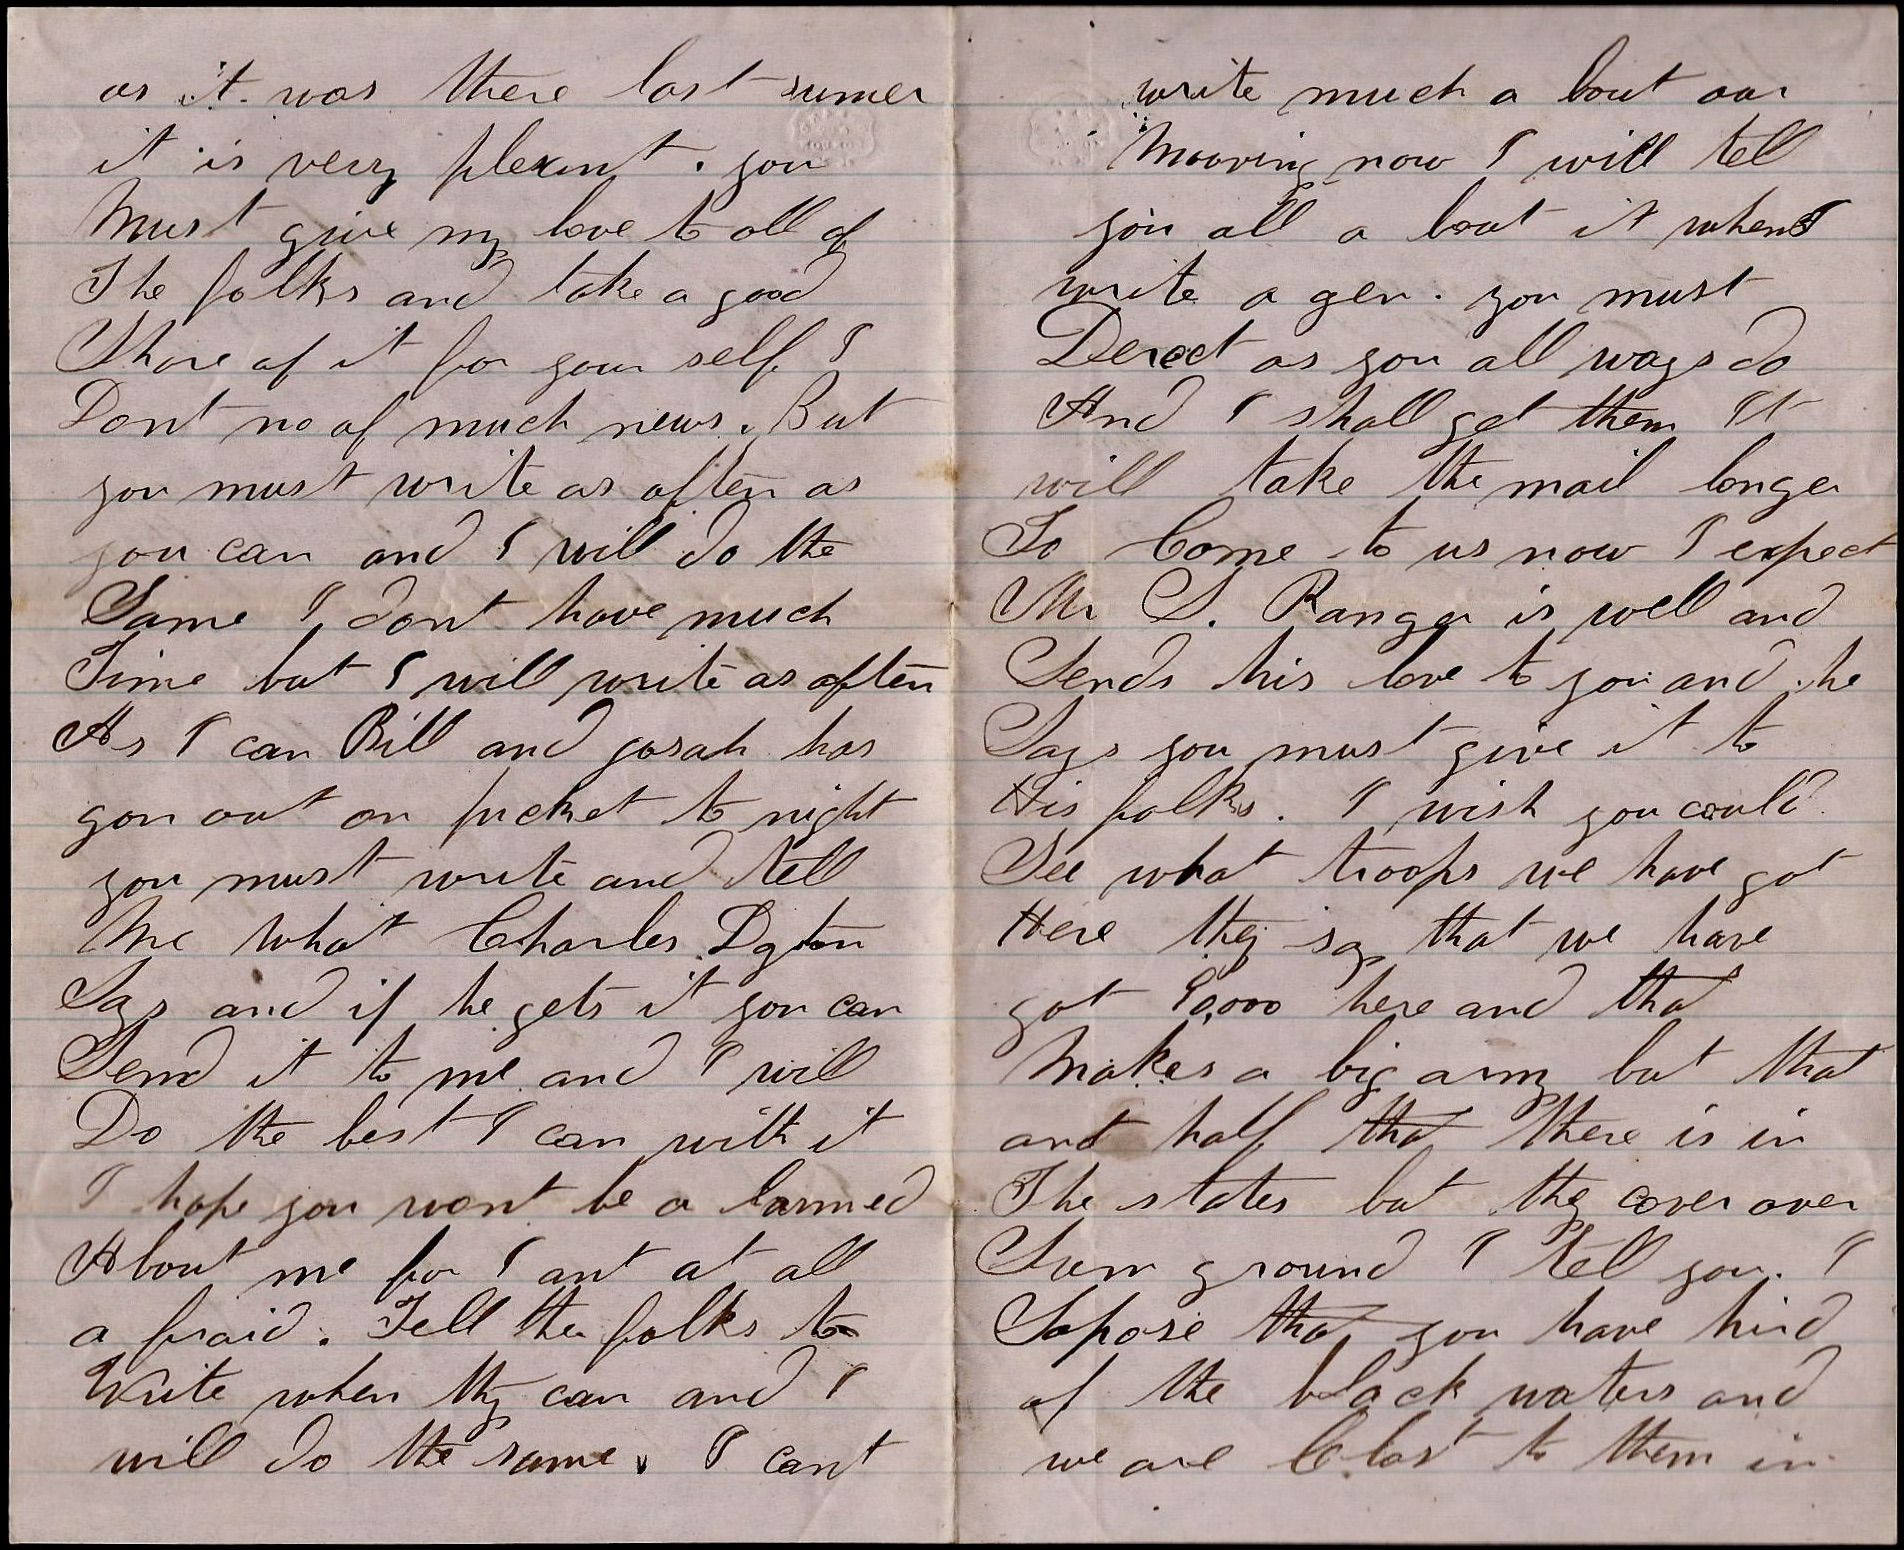 as it was there last sumer
it is very plesent. you
Must give my love to all of
The folks and take a good
Share of it for your self I
Dont no of much news. But
you must write as often as
you can and I will do the
Same I dont have much
Time but I will write as often
As I can Bill and josah has
gon out on picket to night
you must write and tell
Me what Charles
Says and if he gets it you can
Send it to me and I will
Do the best I can with it
I hope you wont be a larmed
About me for I ant at all
a fraid. Tell the folks to
Write when thy can and I
will do the same. I cant
write much a bout our
Mooving now I will tell
you all a bout it when I
write a gen. you must
Derect as you all ways do
And I shall get them It
will take the mail longer
To Come to us now I expect
Mr S. Ranger is well and
Sends his love to you and he
Says you must give it to
His folks. I wish you could
See what troops we have got
Here they say that we have
got 90,000 here and that
Makes a big army but that
ant half that there is in
The states but thy cover over
Sum ground I tell you. I
Sopose that you have hird
of the black waters and
we are Clost to them in